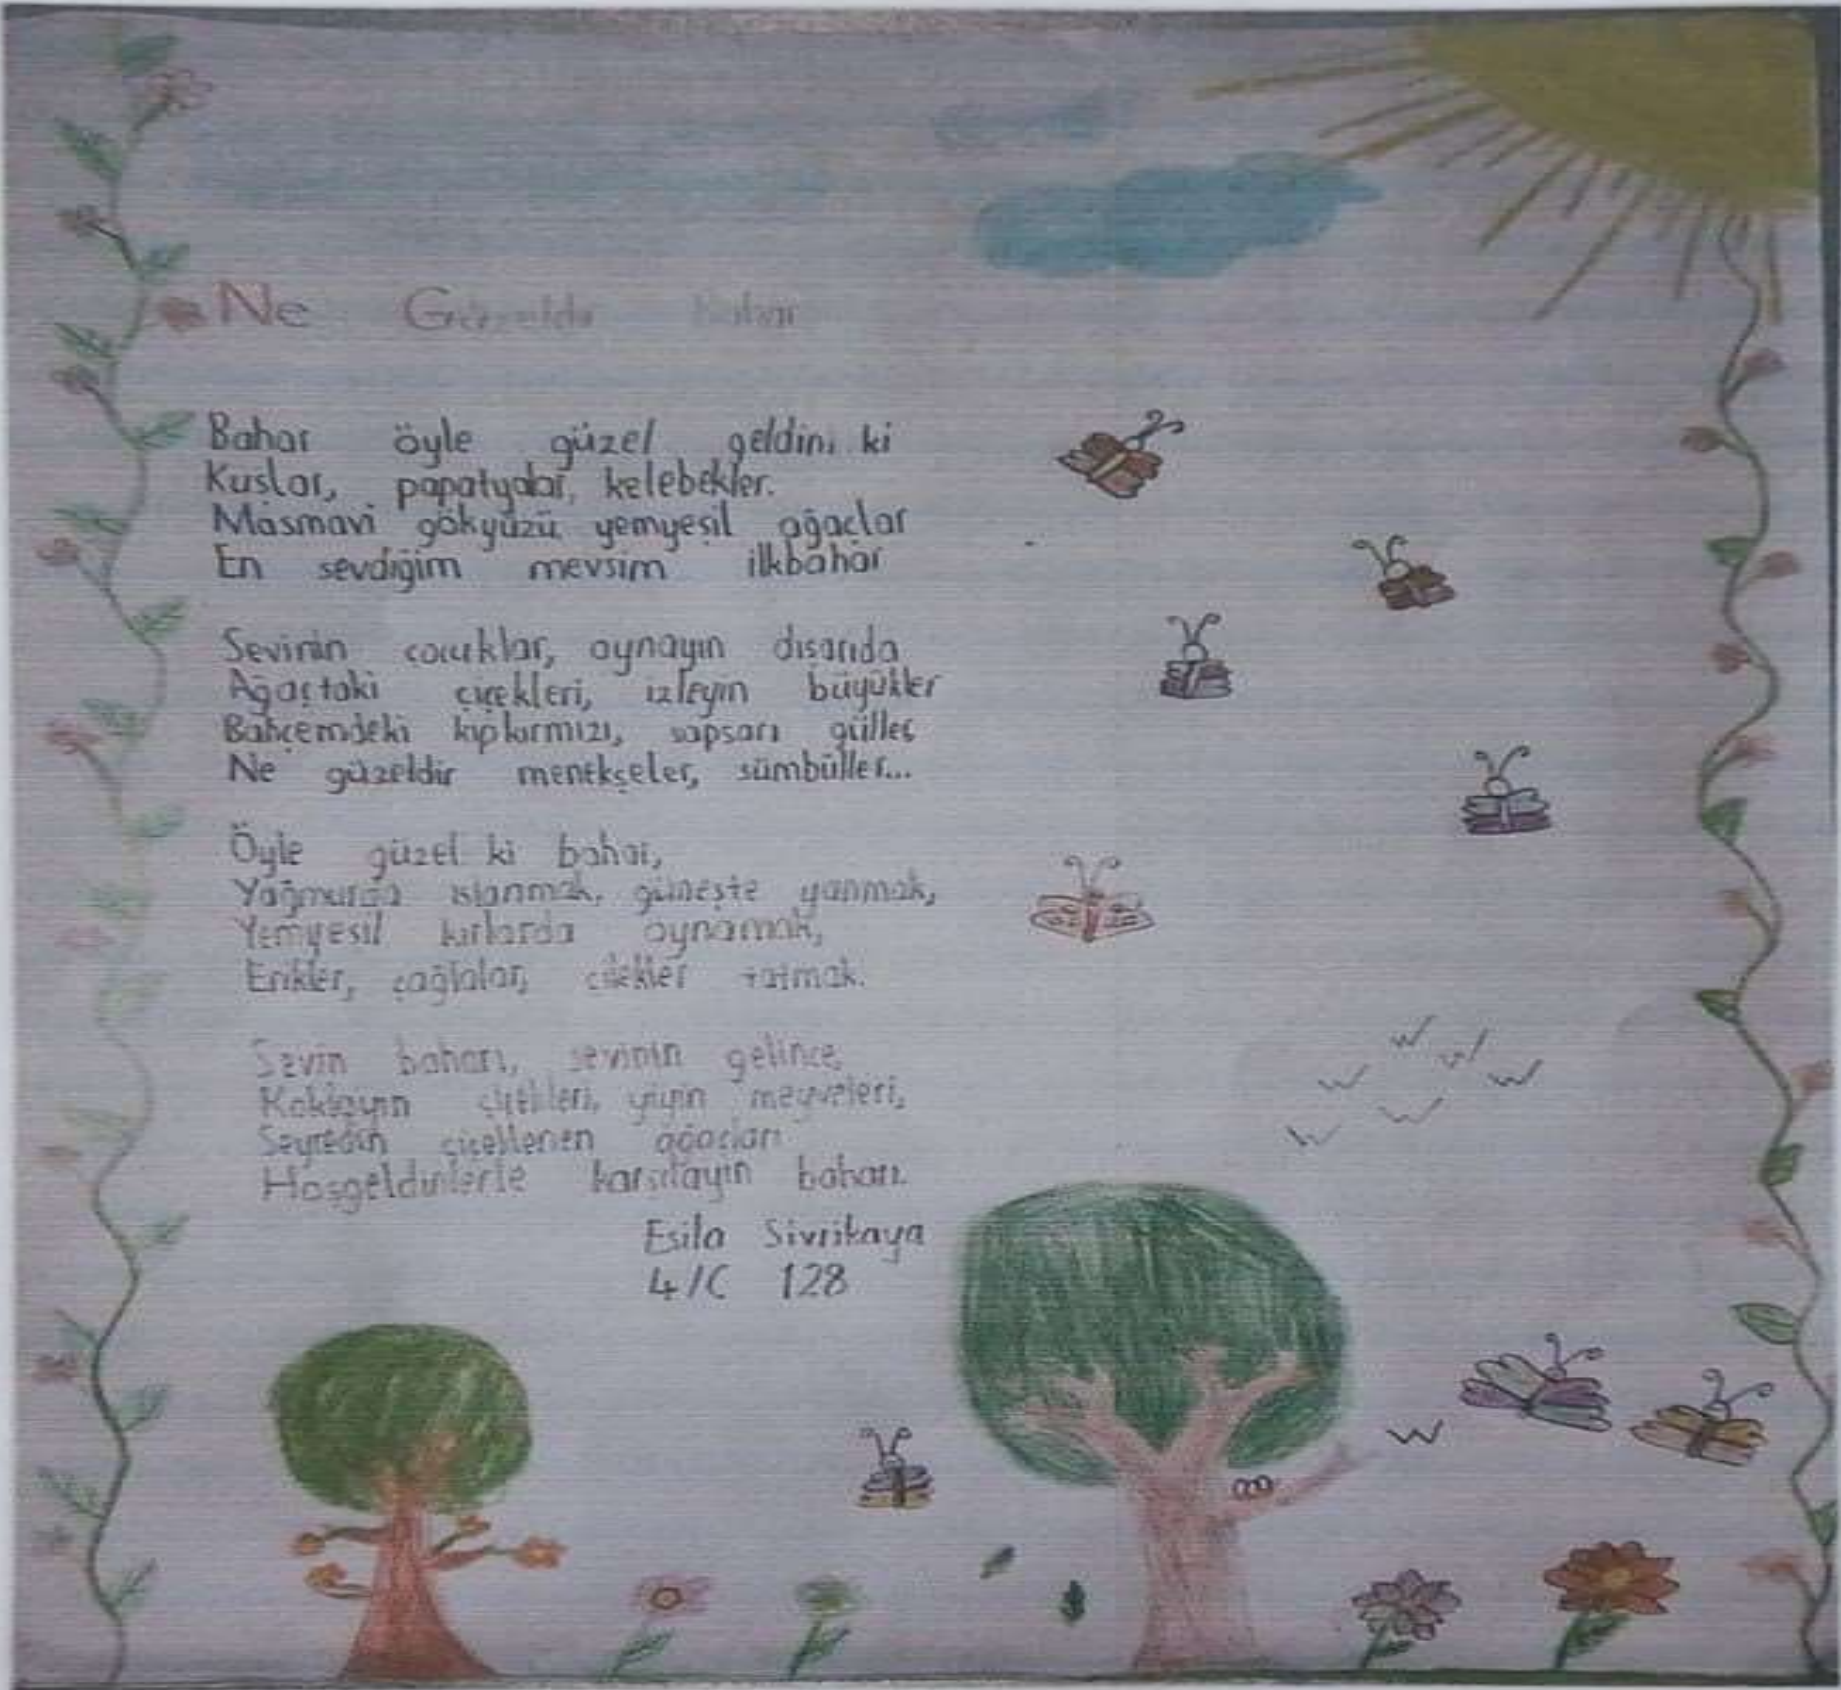 Ne Güzeldir Bahar
Bahar öyle güzel geldin ki
Kuşlar, papatyalar, kelebekler.
Masmavi gökyüzü yemyeşil ağaçlar
En sevdiğim mevsim ilkbahar
Sevinin çocuklar, oynayın dışarıda
Ağaçtaki çiçekleri, izleyin büyükler
Bahçemdeki kıpkırmızı, sapsarı güller
Ne güzeldir menekşeler, sümbüller...
Öyle güzel ki bahar,
Yağmurda ıslanmak, güneşte yanmak,
Yemyeşil kırlarda oynamak,
Erikler, çağlalar, çilekler tatmak.
Sevin baharı, sevinin gelince,
Koklayın çiçekleri, yiyin meyveleri,
Seyredin çiçeklenen ağaçları
Hoşgeldinlerle karşılayın baharı.
Esila Sivrikaya
4/C 128